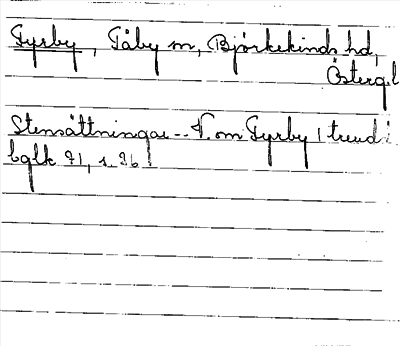 Fyrby, Tåby sn, Björkekinds hd,
Östergl
Stensättningar -- V. om Fyrby
bglk 21, s. 26